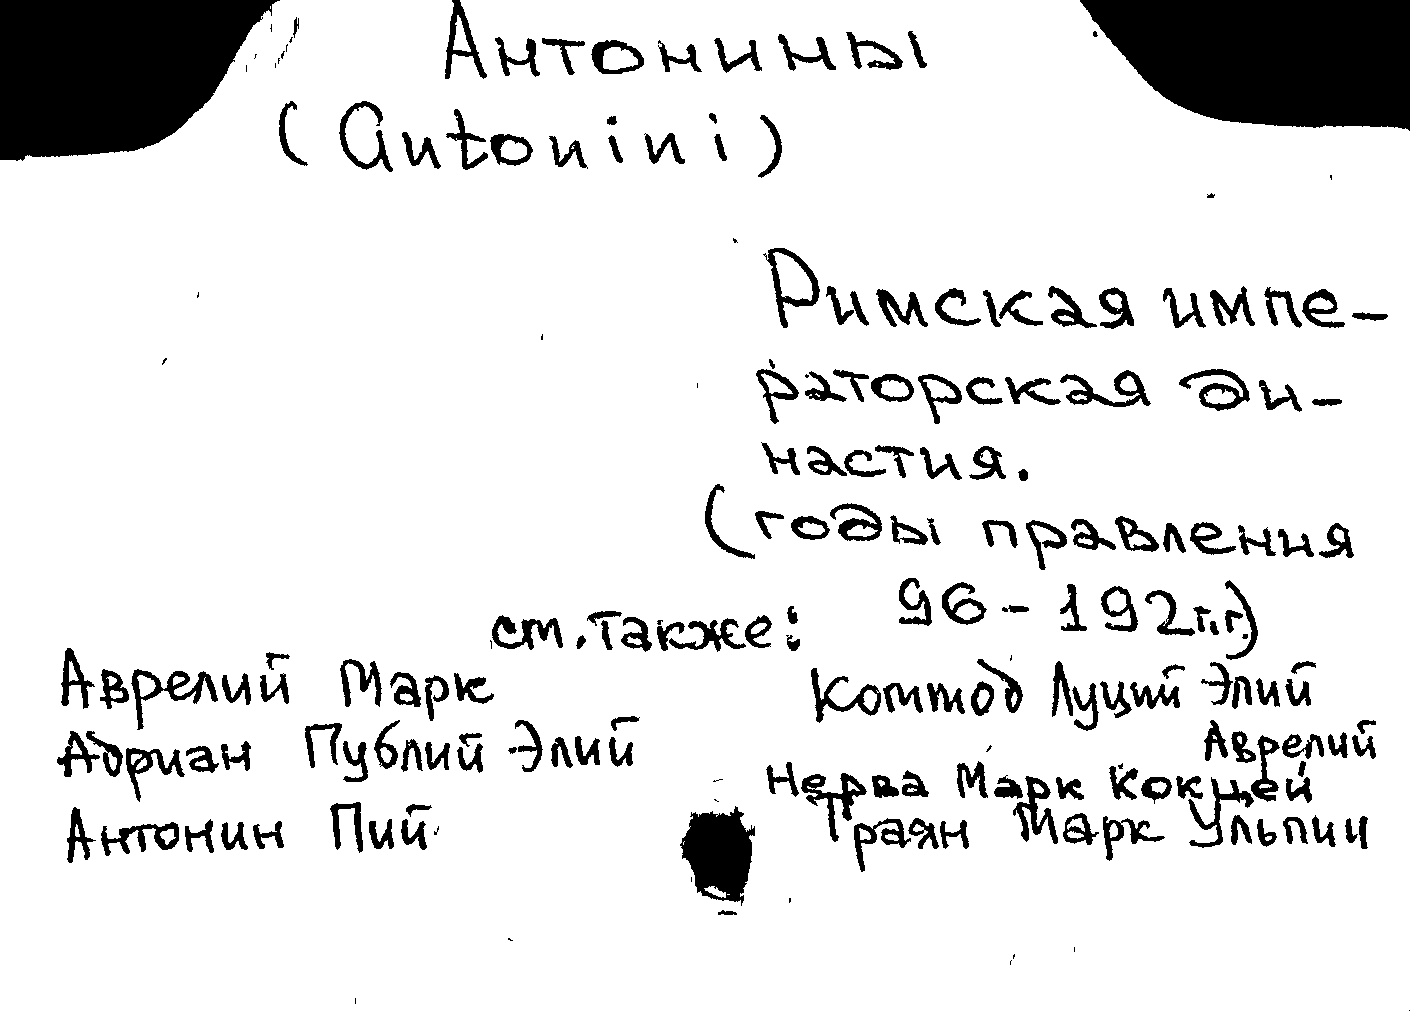 Антонины
(Antonini)
Римская импе-
раторская ди-
настия.
(годы правления
96 - 192 г.г.)
см. также:
Аврелий Марк
Адриан Публий Элий
Антонин Пий
Коммод Луций Элий
Аврелий
Нерва Марк Кокцей
Траян Марк Ульпий